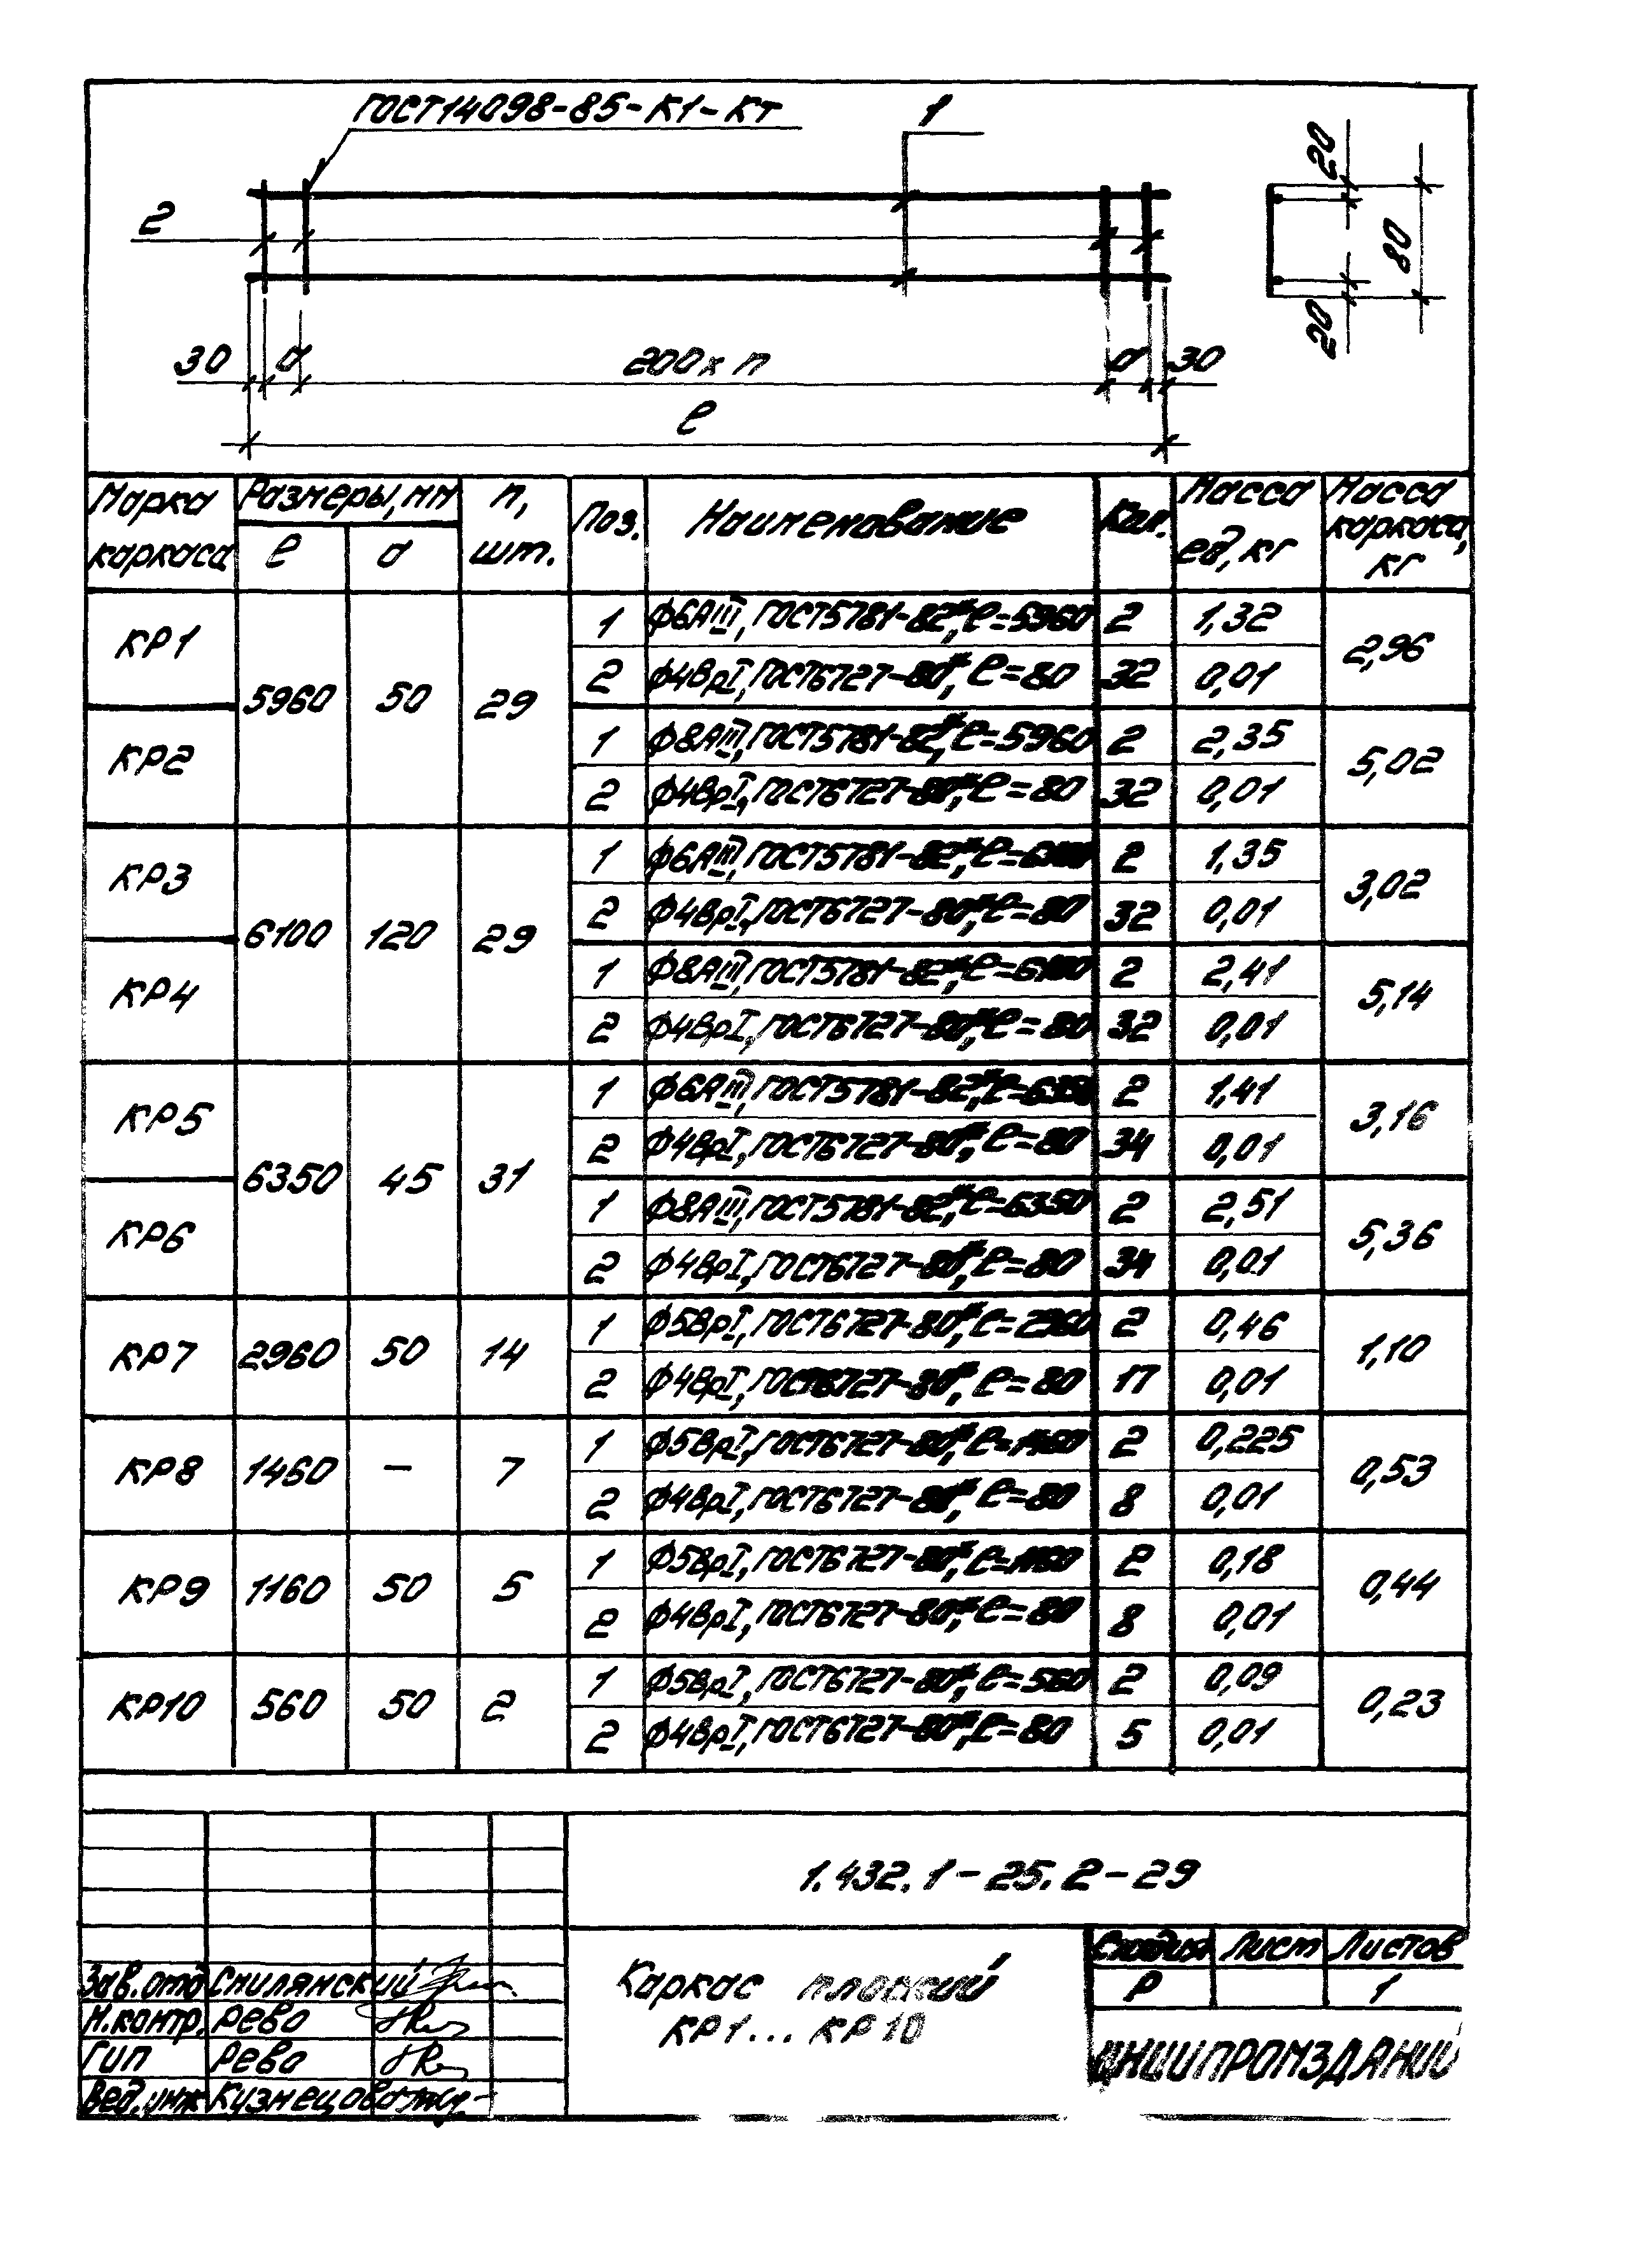 ГОСТ14098-85-К1-Кт
1
2
20
80
20
30 а 200х п а 30
ℓ
Марка каркаса Размеры, мм п, шт. Поз. Наименование Кол. Масса ед, кг Масса каркаса, кг
ℓ а
КР1 5960 50 29 1 Ф6АIII, ГОСТ5781-82*, ℓ=5960 2 1,32 2,96
2 Ф4ВрI, ГОСТ6727-80*, ℓ=80 32 0,01
КР2 1 Ф8АIII, ГОСТ5781-82*, ℓ=5960 2 2,35 5,02
2 Ф4ВрI, ГОСТ6727-80*, ℓ=80 32 0,01
КР3 6100 120 29 1 Ф6АIII, ГОСТ5781-82*, ℓ=6100 2 1,35 3,02
2 Ф4ВрI, ГОСТ6727-80*, ℓ=80 32 0,01
КР4 1 Ф8АIII, ГОСТ5781-82*, ℓ=6100 2 2,41 5,14
2 Ф4ВрI, ГОСТ6727-80*, ℓ=80 32 0,01
КР5 6350 45 31 1 Ф6АIII, ГОСТ5781-82*, ℓ=6350 2 1,41 3,16
2 Ф4ВрI, ГОСТ6727-80*, ℓ=80 34 0,01
КР6 1 Ф8АIII, ГОСТ5781-82*, ℓ=6350 2 2,51 5,36
2 Ф4ВрI, ГОСТ6727-80*, ℓ=80 34 0,01
КР7 2960 50 14 1 Ф5ВрI, ГОСТ6727-80*, ℓ=2960 2 0,46 1,10
2 Ф4ВрI, ГОСТ6727-80*, ℓ=80 17 0,01
КР8 1460 — 7 1 Ф5ВрI, ГОСТ6727-80*, ℓ=1460 2 0,225 0,53
2 Ф4ВрI, ГОСТ6727-80*, ℓ=80 8 0,01
КР9 1160 50 5 1 Ф5ВрI, ГОСТ6727-80*, ℓ=1160 2 0,18 0,44
2 Ф4ВрI, ГОСТ6727-80*, ℓ=80 8 0,01
КР10 560 50 2 1 Ф5ВрI, ГОСТ6727-80*, ℓ=560 2 0,09 0,23
2 Ф4ВрI, ГОСТ6727-80*, ℓ=80 5 0,01
1.432.1-25.2-29
Зав.отд Смилянский
Н.контр. Рево
Гип Рево
Вед.инж Кузнецова
Каркас плоский
КР1...КР10
Стадия Лист Листов
Р 1
ЦНИИПРОМЗДАНИЙ